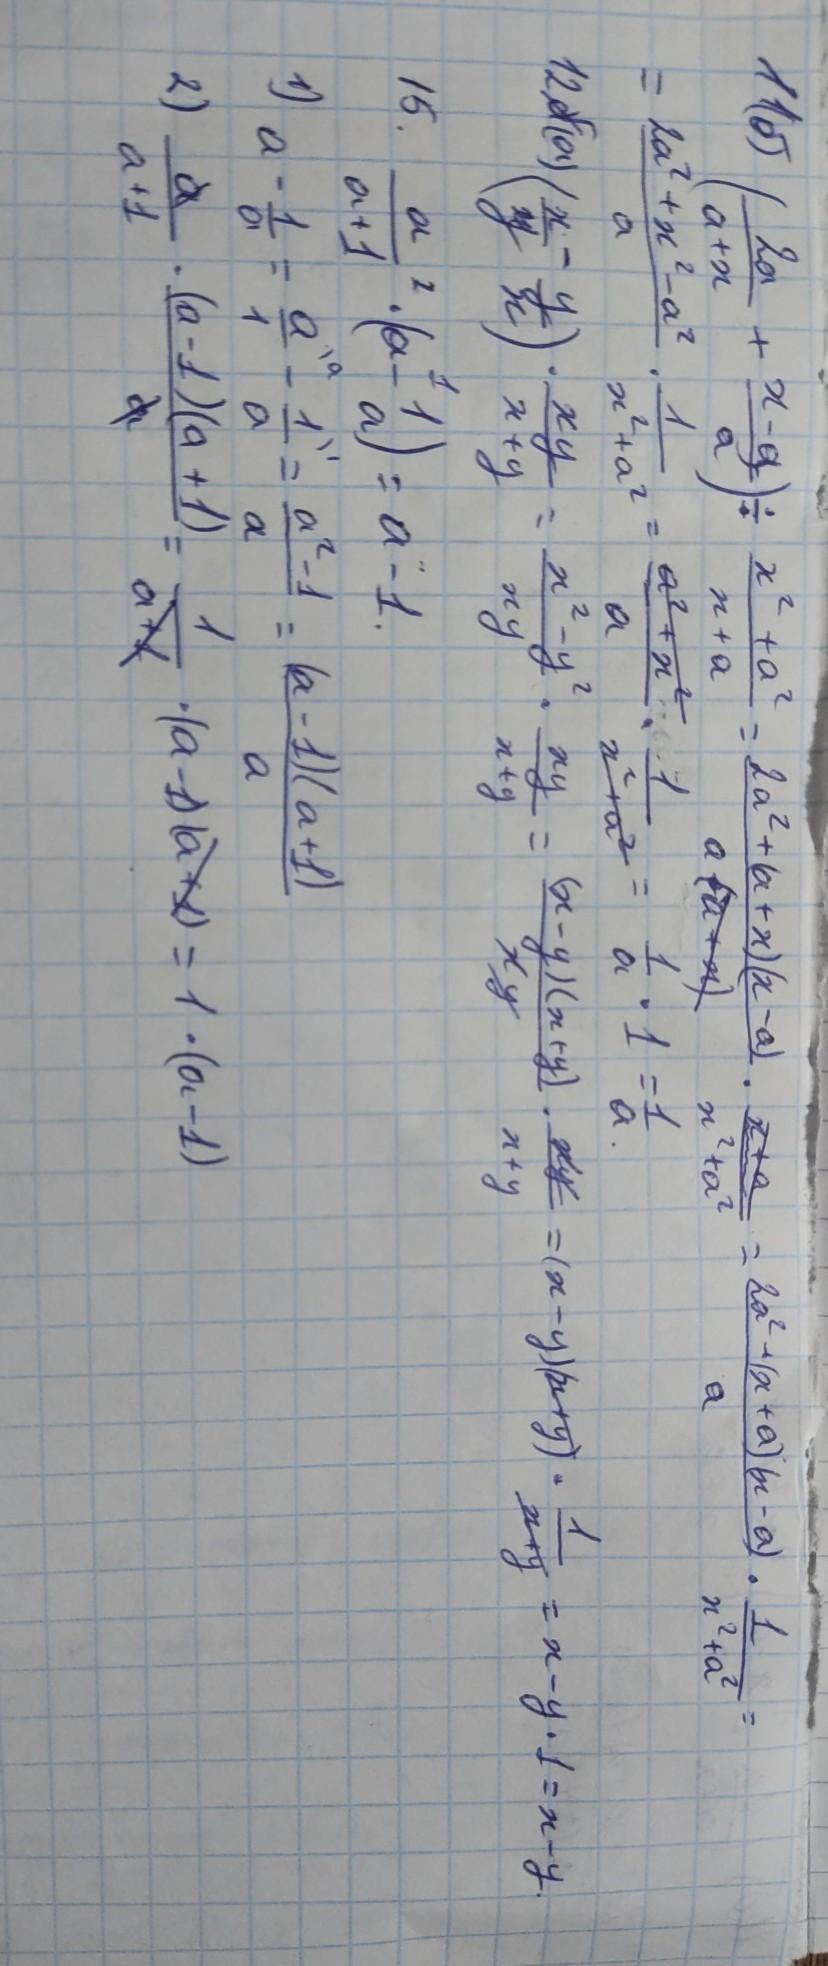 11(б) (2a/(a+x) + (x-a)/a) ÷ (x²+a²)/(x+a) = (2a²+(x+x)(x-a))/(a(a+x)) · (x+a)/(x²+a²) = (2a²+(x+a)(x-a))/a · 1/(x²+a²) =
= (2a²+x²-a²)/a · 1/(x²+a²) = (a²+x²)/a · 1/(x²+a²) = 1/a · 1 = 1/a.
12.(а) (x/y - y/x) · xy/(x+y) = (x²-y²)/xy · xy/(x+y) = (x-y)(x+y)/xy · xy/(x+y) = (x-y)(x+y) · 1/(x+y) = x-y·1 = x-y.
15. a/(a+1) ² · (a ¹ - 1/a) = a-1.
1) a - 1/a = a/1 - 1/a = (a²-1)/a = (a-1)(a+1)/a
2) a/(a+1) · (a-1)(a+1)/a = 1/(a+1) · (a-1)(a+1) = 1·(a-1)